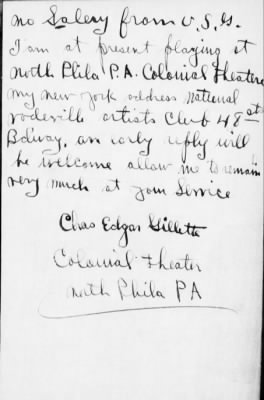 no Salery from U.S.G.
I am at present playing at
North Phila P.A. Colonial Theatere
my new york address National
vodeville artists Club 48 st
Bdway. an early reply will
be welcome allow me to remain
very much at your Service
Chas Edgar Gillette
Colonial Theater
North Phila PA